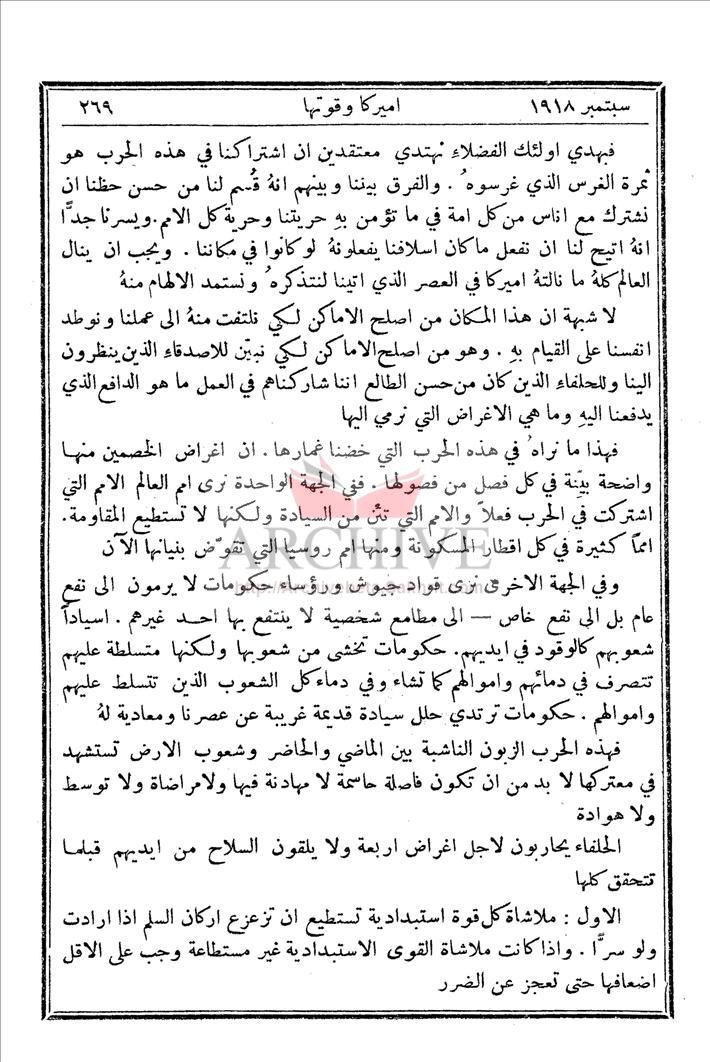 سبتمبر ١٩١٨ اميركا وقوتها ٢٦٩
فبهدي اولئك الفضلاءِ نهتدي معتقدين ان اشتراكنا في هذه الحرب هو
ثمرة الغرس الذي غرسوهُ . والفرق بيننا وبينهم انهُ قُسم لنا من حسن حظنا ان
نشترك مع اناس من كل امة في ما تؤمن بهِ حريتنا وحرية كل الامم. ويسرنا جدًّا
انهُ اتيح لنا ان نفعل ما كان اسلافنا يفعلونهُ لو كانوا في مكاننا . ويجب ان ينال
العالم كلهُ ما نالتهُ اميركا في العصر الذي اتينا لنتذكرهُ ونستمد الالهام منهُ
لا شبهة ان هذا المكان من اصلح الاماكن لكي نلتفت منهُ الى عملنا ونوطد
انفسنا على القيام بهِ . وهو من اصلح الاماكن لكي نبيّن للاصدقاءِ الذين ينظرون
الينا وللحلفاءِ الذين كان من حسن الطالع اننا شاركناهم في العمل ما هو الدافع الذي
يدفعنا اليهِ وما هي الاغراض التي نرمي اليها
فهذا ما نراهُ في هذه الحرب التي خضنا غمارها . ان اغراض الخصمين منها
واضحة بيّنة في كل فصل من فصولها . ففي الجهة الواحدة نرى امم العالم الامم التي
اشتركت في الحرب فعلاً والامم التي تئن من السيادة ولكنها لا تستطيع المقاومة.
امماً كثيرة في كل اقطار المسكونة ومنها امم روسيا التي تقوّض بنيانها الآن
وفي الجهة الاخرى نرى قواد جيوش ورؤساء حكومات لا يرمون الى نفع
عام بل الى نفع خاص — الى مطامع شخصية لا ينتفع بها احد غيرهم . اسياداً
شعوبهم كالوقود في ايديهم. حكومات تخشى من شعوبها ولكنها متسلطة عليهم
تتصرف في دمائهم واموالهم كما تشاء وفي دماء كل الشعوب الذين تتسلط عليهم
واموالهم . حكومات ترتدي حلل سيادة قديمة غريبة عن عصرنا ومعادية لهُ
فهذه الحرب الزبون الناشبة بين الماضي والحاضر وشعوب الارض تستشهد
في معتركها لا بد من ان تكون فاصلة حاسمة لا مهادنة فيها ولا مراضاة ولا توسط
ولا هوادة
الحلفاء يحاربون لاجل اغراض اربعة ولا يلقون السلاح من ايديهم قبلما
تتحقق كلها
الاول : ملاشاة كل قوة استبدادية تستطيع ان تزعزع اركان السلم اذا ارادت
ولو سرًّا . واذا كانت ملاشاة القوى الاستبدادية غير مستطاعة وجب على الاقل
اضعافها حتى تعجز عن الضرر
ARCHIVE